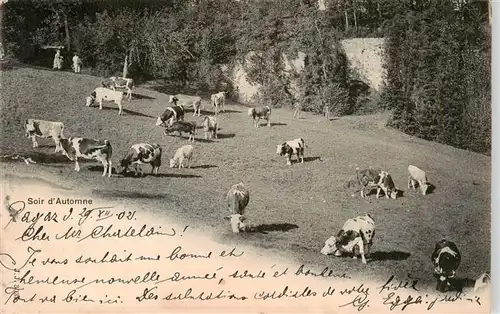 Soir d'Automne
Ragaz d. 29. XII 02.
Cher Mr Chatelain!
Je vous souhait une bonne et
heureuse nouvelle année, santé et bonheur
Tout va bien ici. Des salutations cordiales de votre fidèle